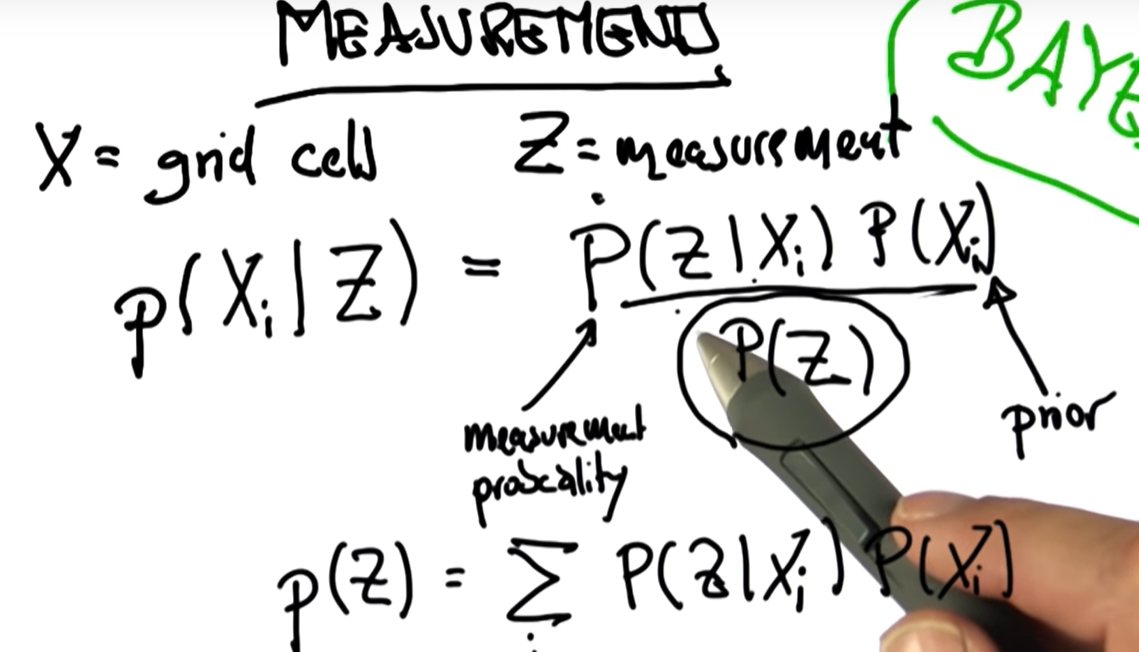 MEASUREMENTS
BAYE
X = grid cell Z = measurement
p(Xi | Z) = P(Z | Xi) P(Xi)
P(Z)
prior
measurement
probability
p(Z) = Σ P(Z | Xi) P(Xi)
i